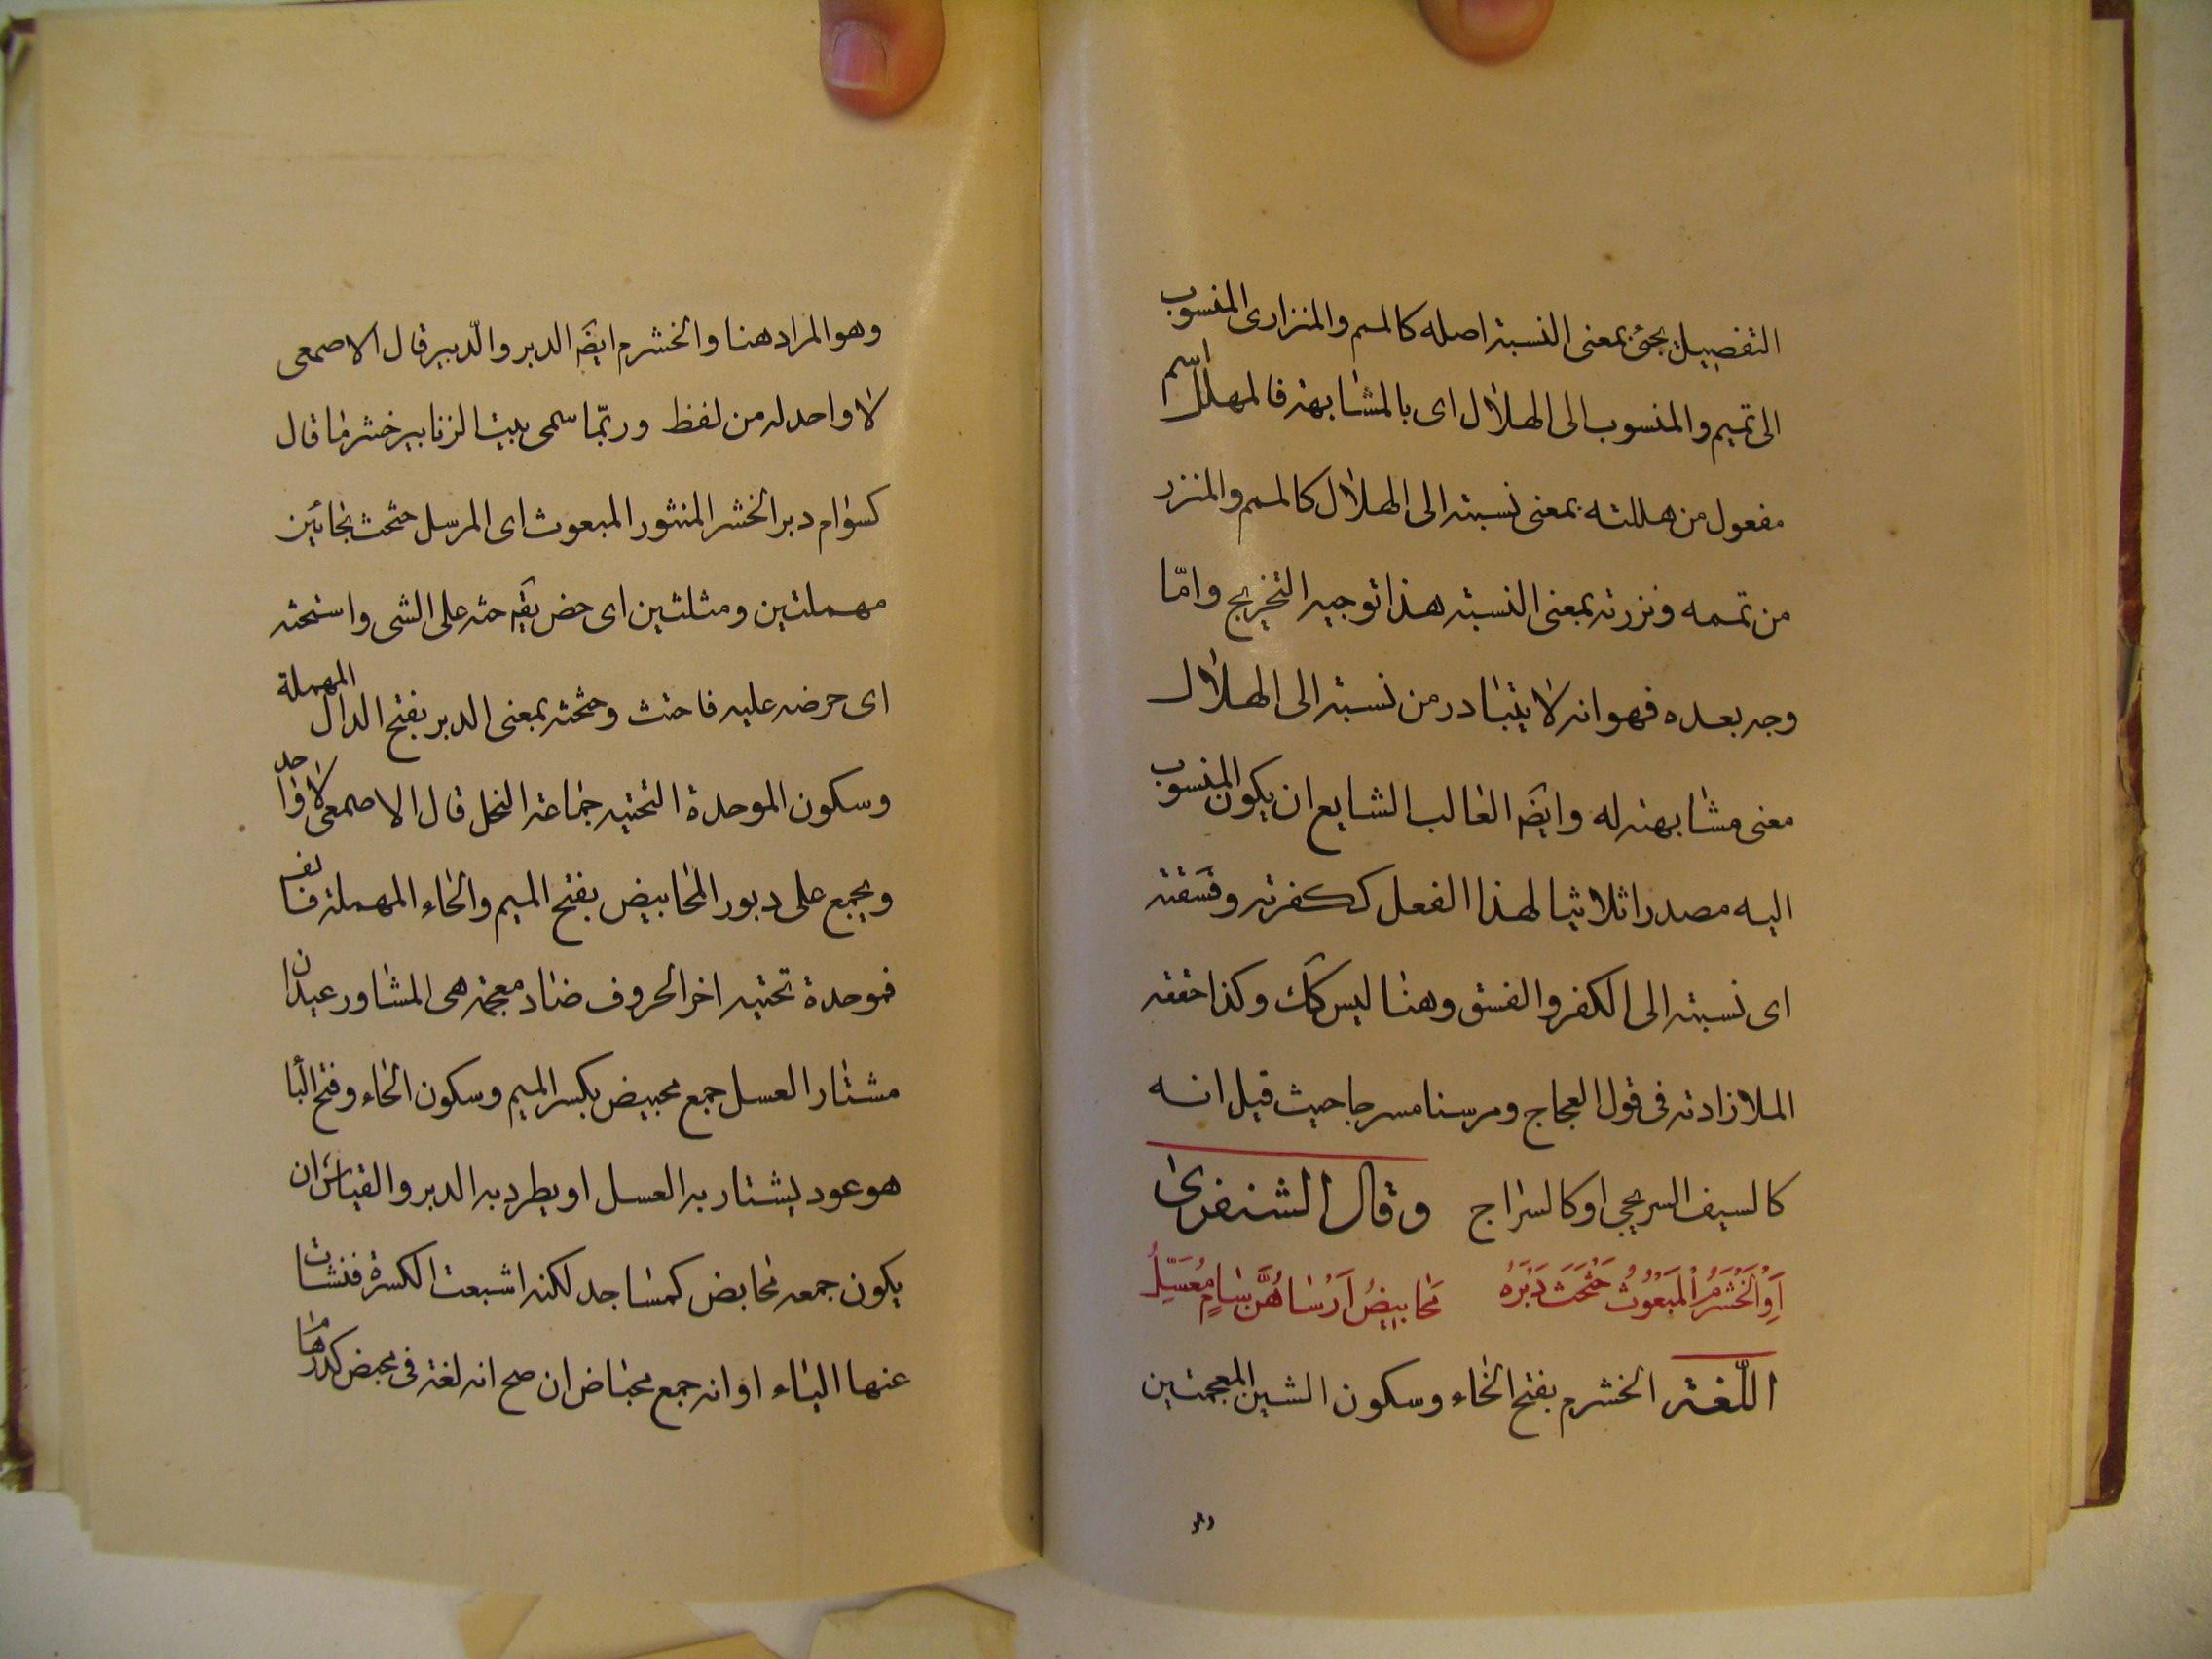 التفضيل يجئ بمعنى النسبة اصله كالمسم والمنزارى المنسوب
الى تميم والمنسوب الى الهلال اى بالمشابهة فالمهلل اسم
مفعول من هللته بمعنى نسبته الى الهلال كالمسم والمنزر
من تممه ونزرته بمعنى النسبته هذا توجيه التخريج وامّا
وجه بعده فهو انه لا يتبادر من نسبته الى الهلال
معنى مشابهته له وايضَ الغالب الشايع ان يكون المنسوب
اليه مصدرا ثلاثيا لهذا الفعل ككفرته وفسَقته
اى نسبته الى الكفر والفسق وهنا ليس كَك وكذا حققه
الملازادته فى قول العجاج ومرسنا مسرجا حيث قيل انه
كالسيف السريجي اوكالسراج وقال الشنفرى
اَوِ الْخَشْرَمُ الْمَبْعُوثُ حَثْحَثَ دَبْرَهُ مَحَابِيضُ اَرْسَاهُنَّ سَامٍ مُعَسِّلُ
اللّغة الخشرم بفتح الخاء وسكون الشين المعجمتين
وهو
وهو المراد هنا والخشرم ايضَ الدبر والدّبير قال الاصمعى
لا واحد له من لفظ وربّما سمى بيت الزنابير خشرما قال
كسوام دبر الخشر المنثور المبعوث اى المرسل حثحث بحائين
مهملتين ومثلثين اى حض يقَ حثه على الشى واستحثه
اى حرضه عليه فاحتث وحثحثه بمعنى الدبر بفتح الدال المهملة
وسكون الموحدة التحتيه جماعة النحل قال الاصمعى لا واحد
ويجمع على دبور المحابيض بفتح الميم والحاء المهملة فالف
فموحدة تحتيه اخر الحروف ضاد معجمة هى المشاور عيدان
مشتار العسل جمع محبيض بكسر الميم وسكون الحاء وفتح البا
هو عود يشتار به العسل او يطرد به الدبر والقياس ان
يكون جمعه محابض كمساجد لكنه اشبعت الكسرة فنشات
عنها الياء او انه جمع محباض ان صح انه لغة فى محبض